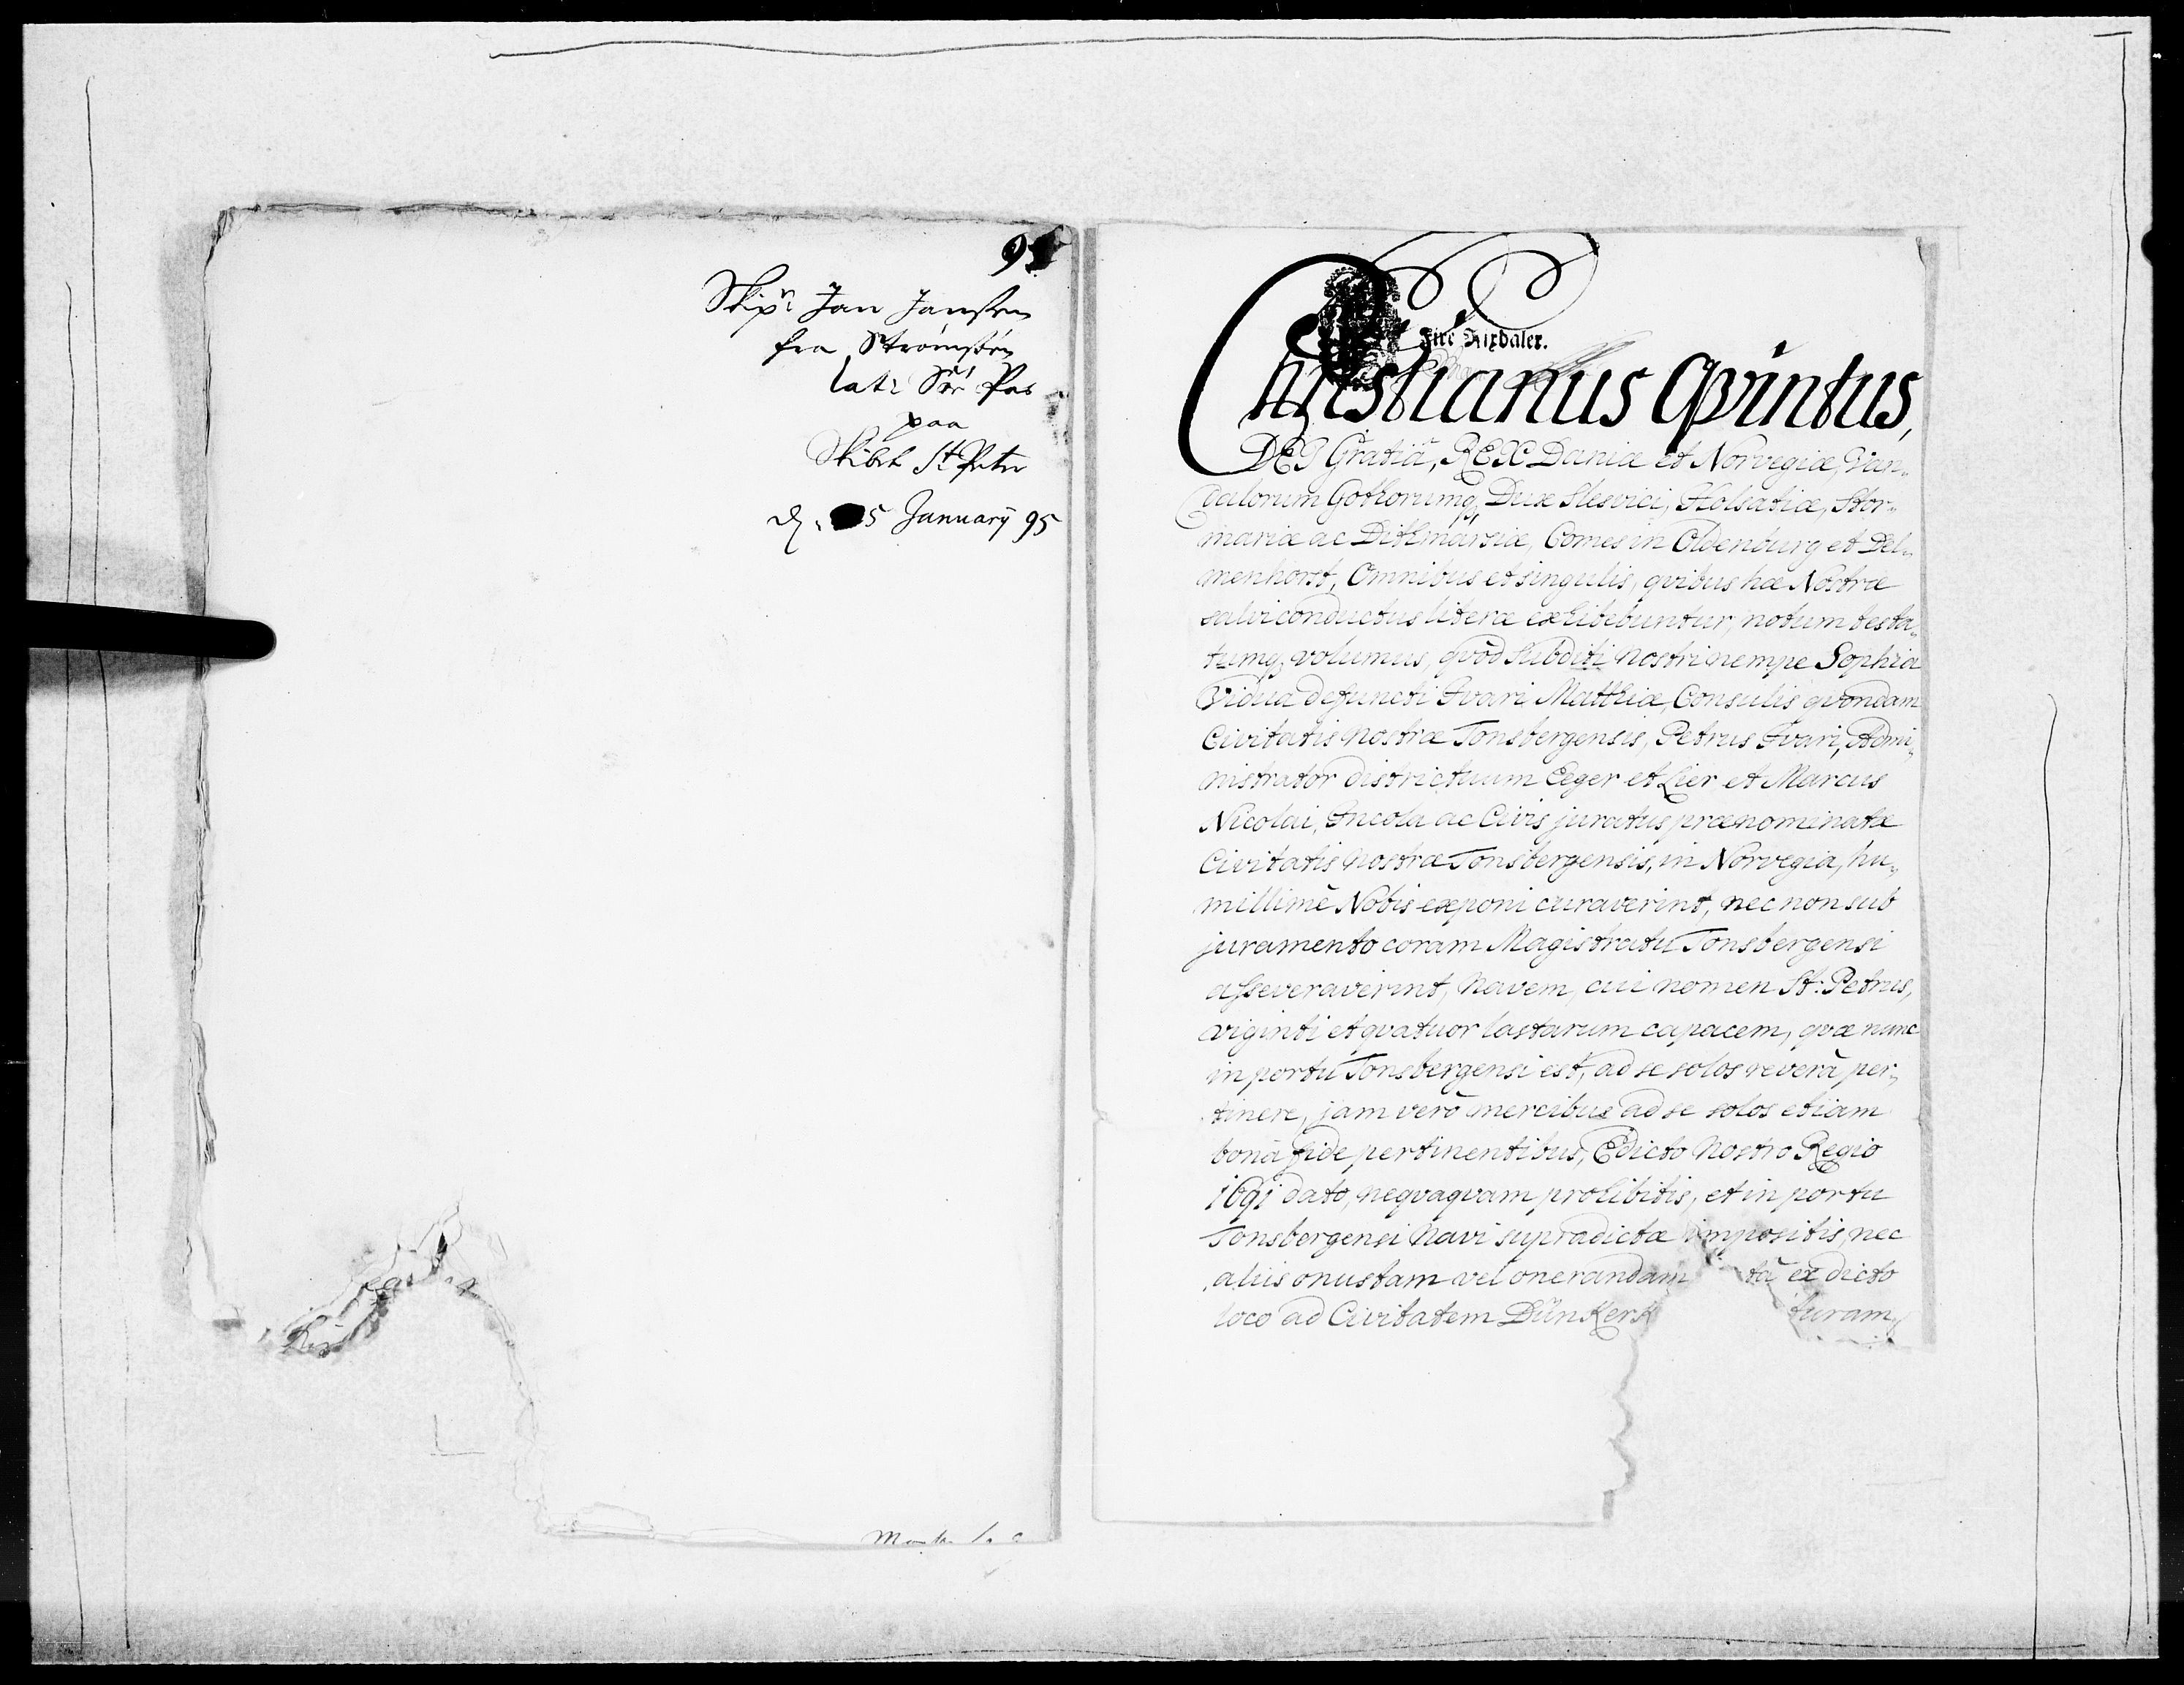 95
Skipr Jan Janssen
fra Strømssøn
lat: Søe Pas
paa
Skibet St Peter
d: 5 January 95
Fire Rixdaler.
Christianus Qvintus,
DEI Gratiâ, REX Daniæ et Norvegiæ, Van„
dalorum Gothorumq, Dux Slesvici, Holsatiæ, Stor„
mariæ ac Dithmarsiæ, Comes in Oldenburg et Del„
menhorst, Omnibus et singulis, qvibus hæ Nostræ
salvi conductus literæ exhibebuntur, notum testa„
tumq volumus, qvòd subditi nostri nempe Sophia
Vidua defuncti Ivari Matthiæ, Consulis qvondam
Civitatis nostræ Tonsbergensis, Petrus Ivari, Admi„
nistrator districtuum Eeger et Lier et Marcus
Nicolai, Incola ac Civis juratus prænominatæ
Civitatis nostræ Tonsbergensis, in Norvegia, hu„
millimè Nobis exponi curaverint, nec non sub
juramento coram Magistratu Tonsbergensi
asseveraverint, Navem, cui nomen St: Petrus,
viginti et qvatuor lastarum capacem, qvæ nunc
in portu Tonsbergensi est, ad se solos reverà per„
tinere, jam verò mercibus ad se solos etiam
bonà fide pertinentibus, Edicto Nostro Regio
1691 dato, neqvaqvam prohibitis, et in portu
Tonsbergensi Navi supradictæ impositis, nec
aliis onustam vel onerandam tâ ex dicto
loco ad Civitatem Dünkerk turam,